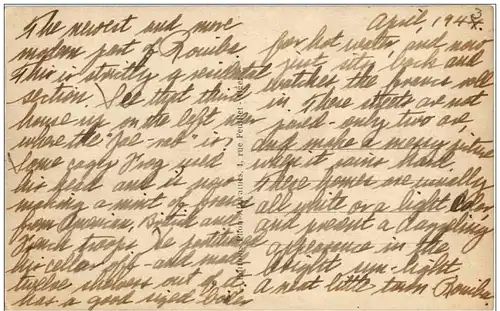 The newest and more
modern part of Rouiba
This is strictly a residential
section. See that third
house up on the left now
where the "Joe-nat" is,
Some cagey Frog used
his head and is now
making a mint of francs
from American, British and
French troops. He partitioned
his cellar off - and made
twelve showers out of it
has a good sized boiler
April, 1944.
3
for hot water, and now
just sits back and
watches the francs roll
in. These streets are not
paved - only two are,
and make a messy picture
when it rains hard
These homes are usually
all white or a light color
and present a dazzling
appearance in the
bright sun-light
a neat little town Rouiba
1, rue Pestel